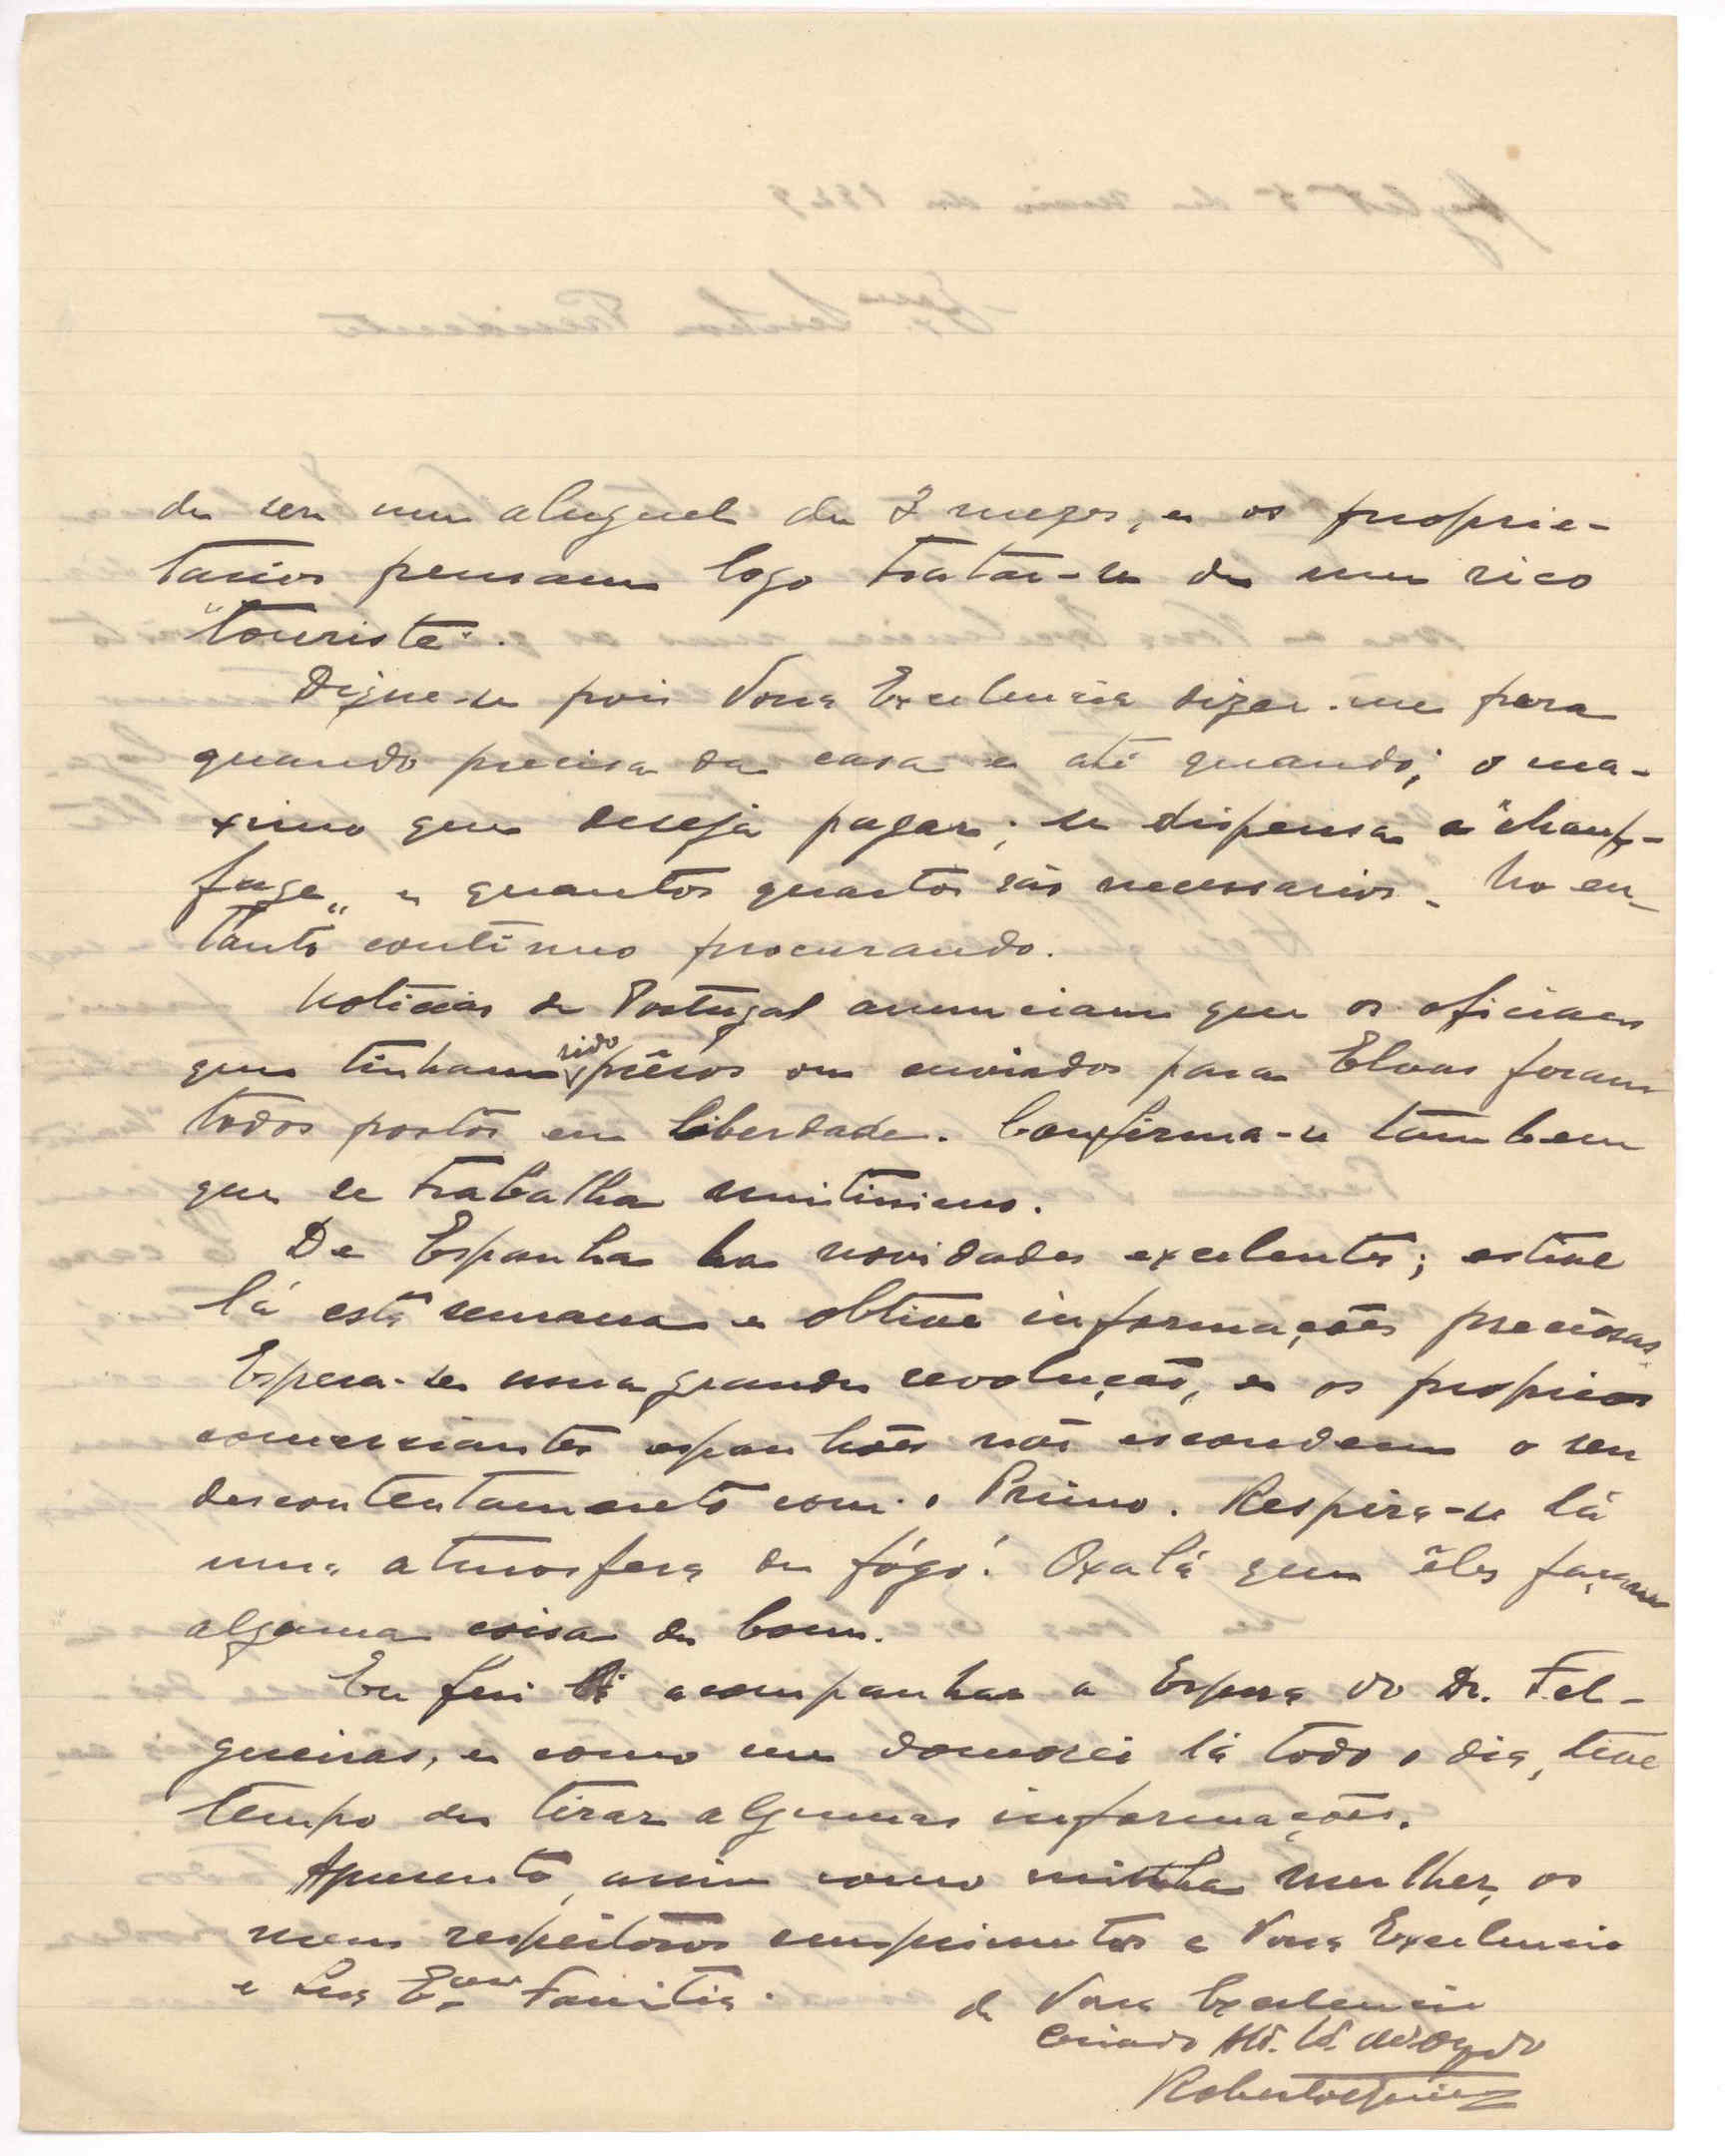 de ser um aluguel de 3 mezes, e os proprie-
tarios pensam logo tratar-se de um rico
"touriste".
Digne-se pois Vossa Excelencia dizer-me para
quando precisa da casa e até quando; o ma-
ximo que deseja pagar; se dispensa a "chauf-
fage" e quantos quartos são necessarios. No en-
tanto continuo procurando.
Noticias de Portugal anunciam que os oficiaes
que tinham sido prêsos ou enviados para Elvas foram
todos postos em liberdade. Confirma-se tambem
que se trabalha muitissimo.
De Espanha ha novidades excelentes; estive
lá esta semana e obtive informações preciosas.
Espera-se uma grande revolução, e os proprios
comerciantes espanhoes não escondem o seu
descontentamento com o Primo. Respira-se lá
uma atmosfera de fógo! Oxalá que êles façam
alguma coisa de bom.
Eu fui acompanhar a Esposa do Dr. Fel-
gueiras, e como me demorei lá todo o dia, tive
tempo de tirar algumas informações.
Apresento, assim como minha mulher, os
meus respeitosos cumprimentos a Vossa Excelencia
e Sua Exma Familia.
de Vossa Excelencia
Criado Mt. At. Obgdo
Roberto